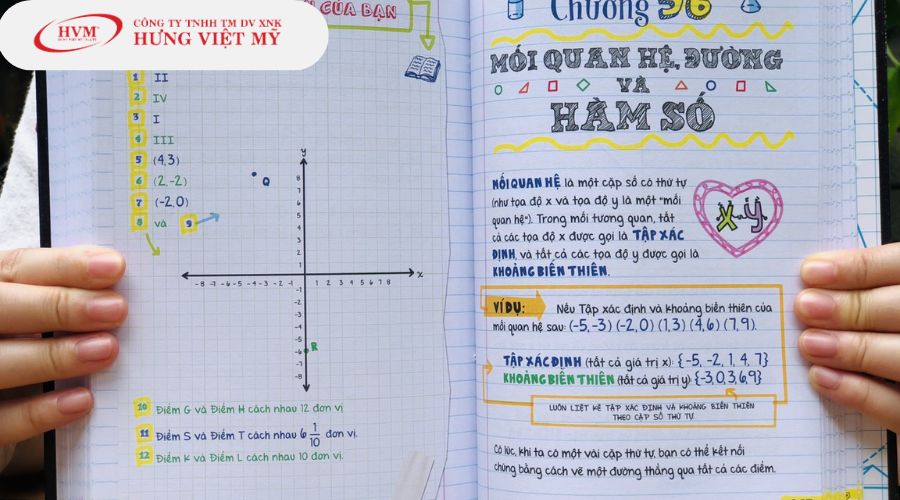 HVM
CÔNG TY TNHH TM DV XNK
HƯNG VIỆT MỸ
CỦA BẠN
1 II
2 IV
3 I
4 III
5 (4,3)
6 (2,-2)
7 (-2,0)
8 và 9
y
8
7
6
5
4
3
2
1
Q
-8 -7 -6 -5 -4 -3 -2 -1 1 2 3 4 5 6 7 8 x
-1
-2
-3
-4
-5
-6 R
-7
-8
10 Điểm G và Điểm H cách nhau 12 đơn vị
11 Điểm S và Điểm T cách nhau 6 1/10 đơn vị.
12 Điểm K và Điểm L cách nhau 10 đơn vị.
Chương 36
MỐI QUAN HỆ, ĐƯỜNG
VÀ
HÀM SỐ
MỐI QUAN HỆ là một cặp số có thứ tự
(như tọa độ x và tọa độ y là một "mối
quan hệ"). Trong mối tương quan, tất
cả các tọa độ x được gọi là TẬP XÁC
ĐỊNH, và tất cả các tọa độ y được gọi là
KHOẢNG BIẾN THIÊN.
x y
VÍ DỤ: Nếu Tập xác định và khoảng biến thiên của
mối quan hệ sau: (-5,-3) (-2,0) (1,3) (4,6) (7,9).
TẬP XÁC ĐỊNH (tất cả giá trị x): {-5, -2, 1, 4, 7}
KHOẢNG BIẾN THIÊN (tất cả giá trị y) {-3,0,3,6,9}
LUÔN LIỆT KÊ TẬP XÁC ĐỊNH VÀ KHOẢNG BIẾN THIÊN
THEO CẶP SỐ THỨ TỰ.
Có lúc, khi ta có một vài cặp thứ tự, bạn có thể kết nối
chúng bằng cách vẽ một đường thẳng qua tất cả các điểm.